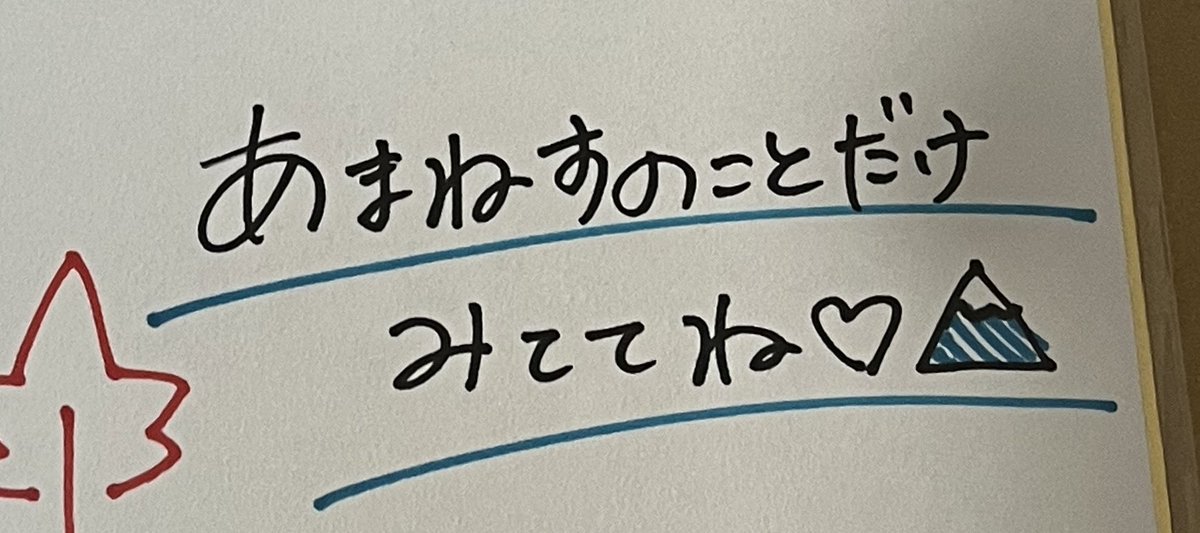 あまねすのことだけ
みててね♡